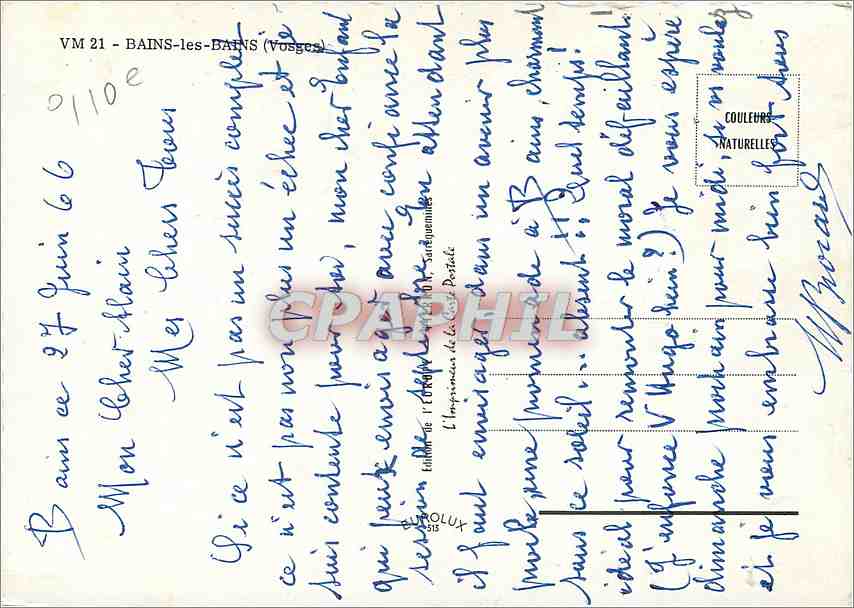 VM 21 - BAINS-les-BAINS (Vosges)
0110e
COULEURS
NATURELLES
Edition de l'EUROP PIERRON, Sarreguemines
L'Imprimeur de la Carte Postale
EUROLUX
515
CPAPHIL
Bains ce 27 Juin 66
Mon Cher Alain
Mes Chers Tous
Si ce n'est pas un succès complet
ce n'est pas non plus un échec et je
suis contente pour toi, mon cher enfant
qui peut envisager avec confiance la
session de septembre. En attendant
il faut envisager dans un avenir plus
proche, une promenade à Bains, charmant
sans ce soleil ... absent !! Quel temps!
idéal pour remonter le moral défaillant.
(J'enfonce V Hugo hein?) Je vous espère
dimanche prochain pour midi, si vs voulez
et je vous embrasse bien fort tous